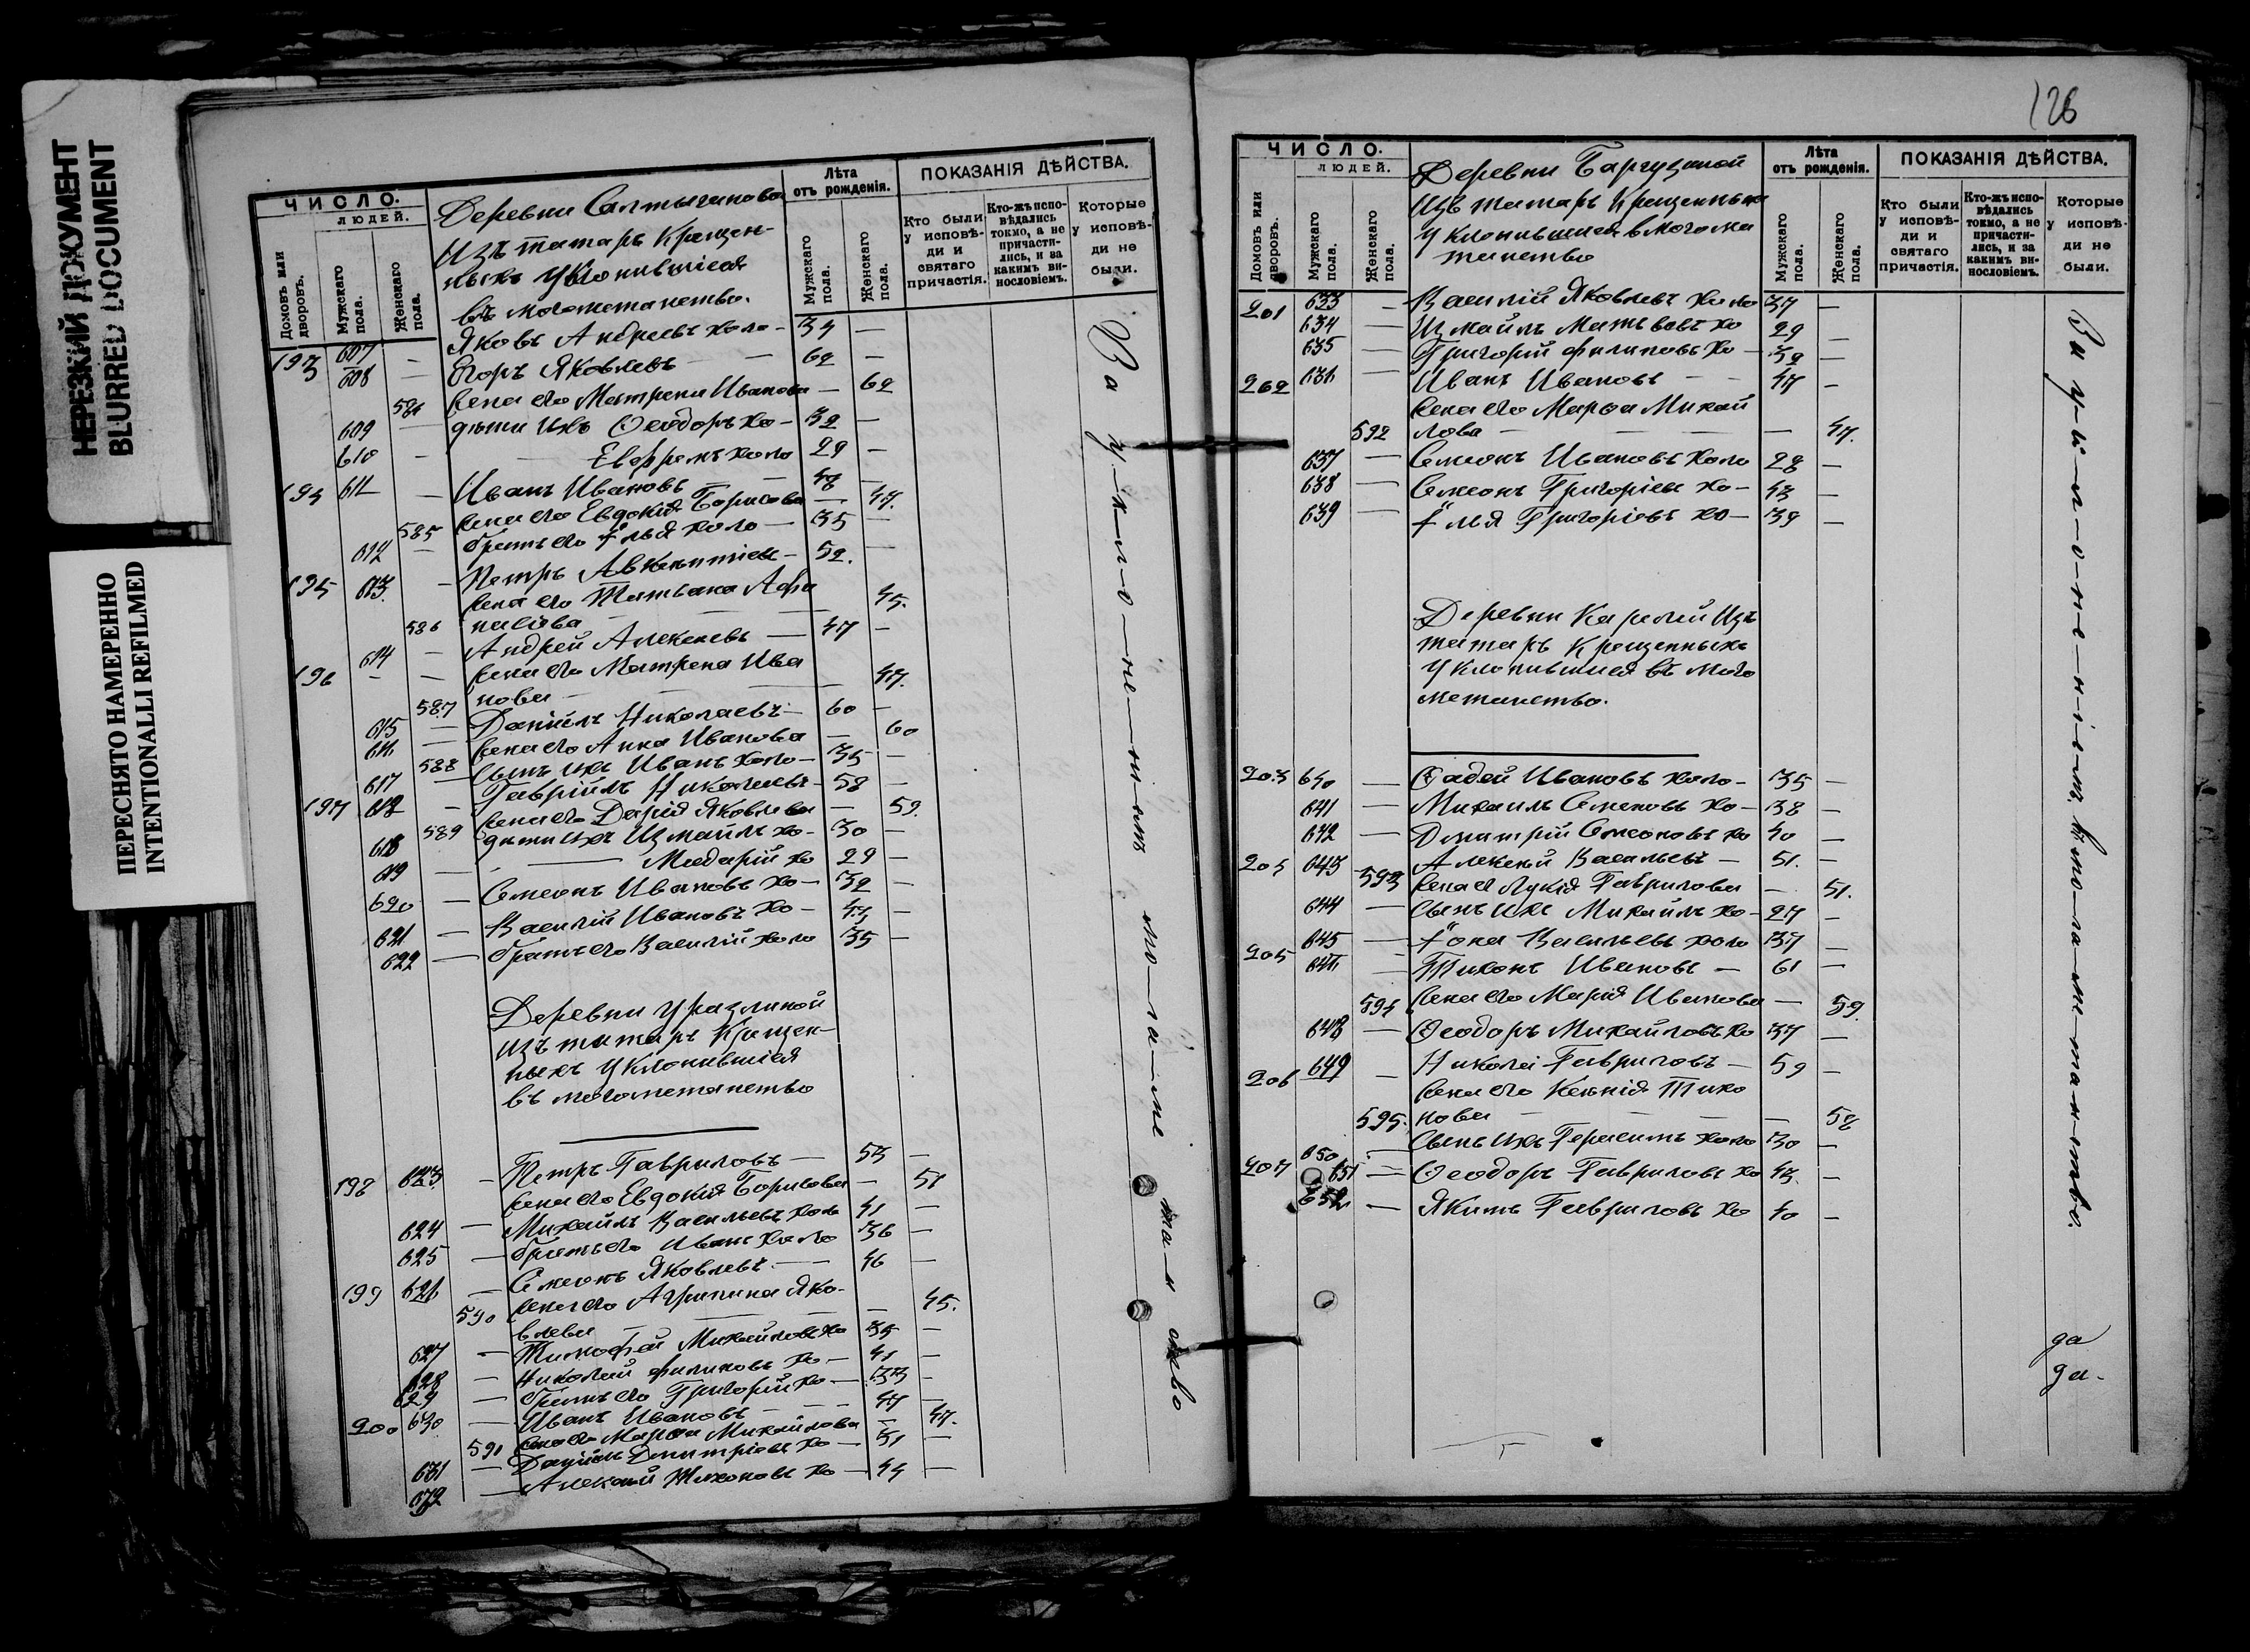 НЕРЕЗКИЙ ДОКУМЕНТ
BLURRED DOCUMENT
ПЕРЕСНЯТО НАМЕРЕННО
INTENTIONALLI REFILMED
ЧИСЛО.
ЛЮДЕЙ.
Домовъ или дворовъ.
Мужскаго пола.
Женскаго пола.
Деревни Салтыганово
Изъ татаръ Крещен-
ныхъ уклонившіеся
въ могометанство.
Лѣта
отъ рожденія.
Мужскаго пола.
Женскаго пола.
ПОКАЗАНІЯ ДѢЙСТВА.
Кто были у исповѣ-ди и святаго причастія.
Кто-жъ испо-вѣдались токмо, а не причасти-лись, и за какимъ ви-нословіемъ.
Которые у исповѣ-ди не были.
193 607 — Яковъ Андреевъ холо- 34 —
608 — Егоръ Яковлевъ — 62 —
584 жена его Матрена Иванова — 62
609 — дѣти ихъ Ѳеодоръ хо- 32 —
610 — Ефремъ холо 29 —
194 611 — Иванъ Ивановъ — 48 —
585 жена его Евдокія Борисова — 47.
612 — братъ его Илья холо — 35 —
195 613. — Петръ Авксентіев — 52. —
жена его Татьяна Афа
586 насіева — 45.
196 614 — Андрей Алексеевъ — 47 —
жена его Матрена Ива
587 нова — 47.
615 — Даніилъ Николаевъ — 60 —
616 588 жена его Анна Иванова — 60
617 — Сынъ ихъ Иванъ холо — 35 —
197 618 — Гавріилъ Николаевъ — 58 —
589 жена его Дарія Яковлева — 59.
618 дѣти ихъ Измаилъ хо- 30 —
619 — хо 29 —
620 — Симеонъ Ивановъ хо — 32 —
621 — Василій Ивановъ хо — 44 —
622 — братъ его Василій холо 35 —
Деревни Уразлиной
изъ татаръ Крещен-
ныхъ уклонившіеся
въ могометанство
198 623. — Петръ Гавриловъ — 53 —
жена его Евдокія Борисова — 51
624 — Михаилъ Васильевъ холо 41 —
625 — братъ его Иванъ холо 36 —
199 626 — Симеонъ Яковлевъ — 46 —
590 жена его Агрипина Яко-
влева — 45.
627 — Тимофей Михайловъ хо 35 —
628 — Николай Филиповъ хо — 41 —
629 — братъ его Григорій хо — 33 —
200 630 — Иванъ Ивановъ — 47 —
591 жена его Марѳа Михайлова — 47.
631 — Даніилъ Дмитріевъ хо — 31 —
632 — Алексей Тихоновъ хо — 44 —
За уклоненіемъ могаметанство
126
ЧИСЛО.
ЛЮДЕЙ.
Домовъ или дворовъ.
Мужскаго пола.
Женскаго пола.
Деревни Баргузиной
Изъ татаръ Крещенныхъ
уклонившиеся в могоме
танство
Лѣта
отъ рожденія.
Мужскаго пола.
Женскаго пола.
ПОКАЗАНІЯ ДѢЙСТВА.
Кто были у исповѣ-ди и святаго причастія.
Кто-жъ испо-вѣдались токмо, а не причасти-лись, и за какимъ ви-нословіемъ.
Которые у исповѣ-ди не были.
201 633 — Василій Яковлевъ холо 37 —
634 — Измаилъ Матвѣевъ хо 29 —
635 — Григорій Филиповъ хо — 32 —
202 636 — Иванъ Ивановъ — 47 —
жена его Марѳа Михай
592 лова — 47.
637 — Симеонъ Ивановъ холо 28 —
638 — Симеонъ Григоріев хо — 43 —
639 — Илья Григоріевъ хо — 39 —
Деревни Карлий Изъ
татаръ Крещенныхъ
уклонившиеся въ мого
метанство.
203 640 — Ѳадей Ивановъ холо — 35 —
641 — Михаилъ Семеновъ хо — 38 —
642 — Дмитрій Симеоновъ хо 40 —
204 643 — Алексей Васильевъ — 51. —
593 жена ег Лукія Гаврилова — 51.
644 — сынъ ихъ Михаилъ хо — 27 —
645 — Iона Васильевъ холо 37 —
205 646 — Тихонъ Ивановъ — 61 —
594 жена его Марія Иванова — 59.
648 — Ѳеодоръ Михайловъ хо 37 —
206 649 — Николай Гавриловъ — 59 —
жена его Ксенія Тихо
595. нова — 58
650 — сынъ ихъ Герасимъ холо 30 —
207 651 — Ѳеодоръ Гавриловъ хо 43. —
652 — Якимъ Гавриловъ хо 40 —
За уклоненіемъ въ могаметанство.
да
да.